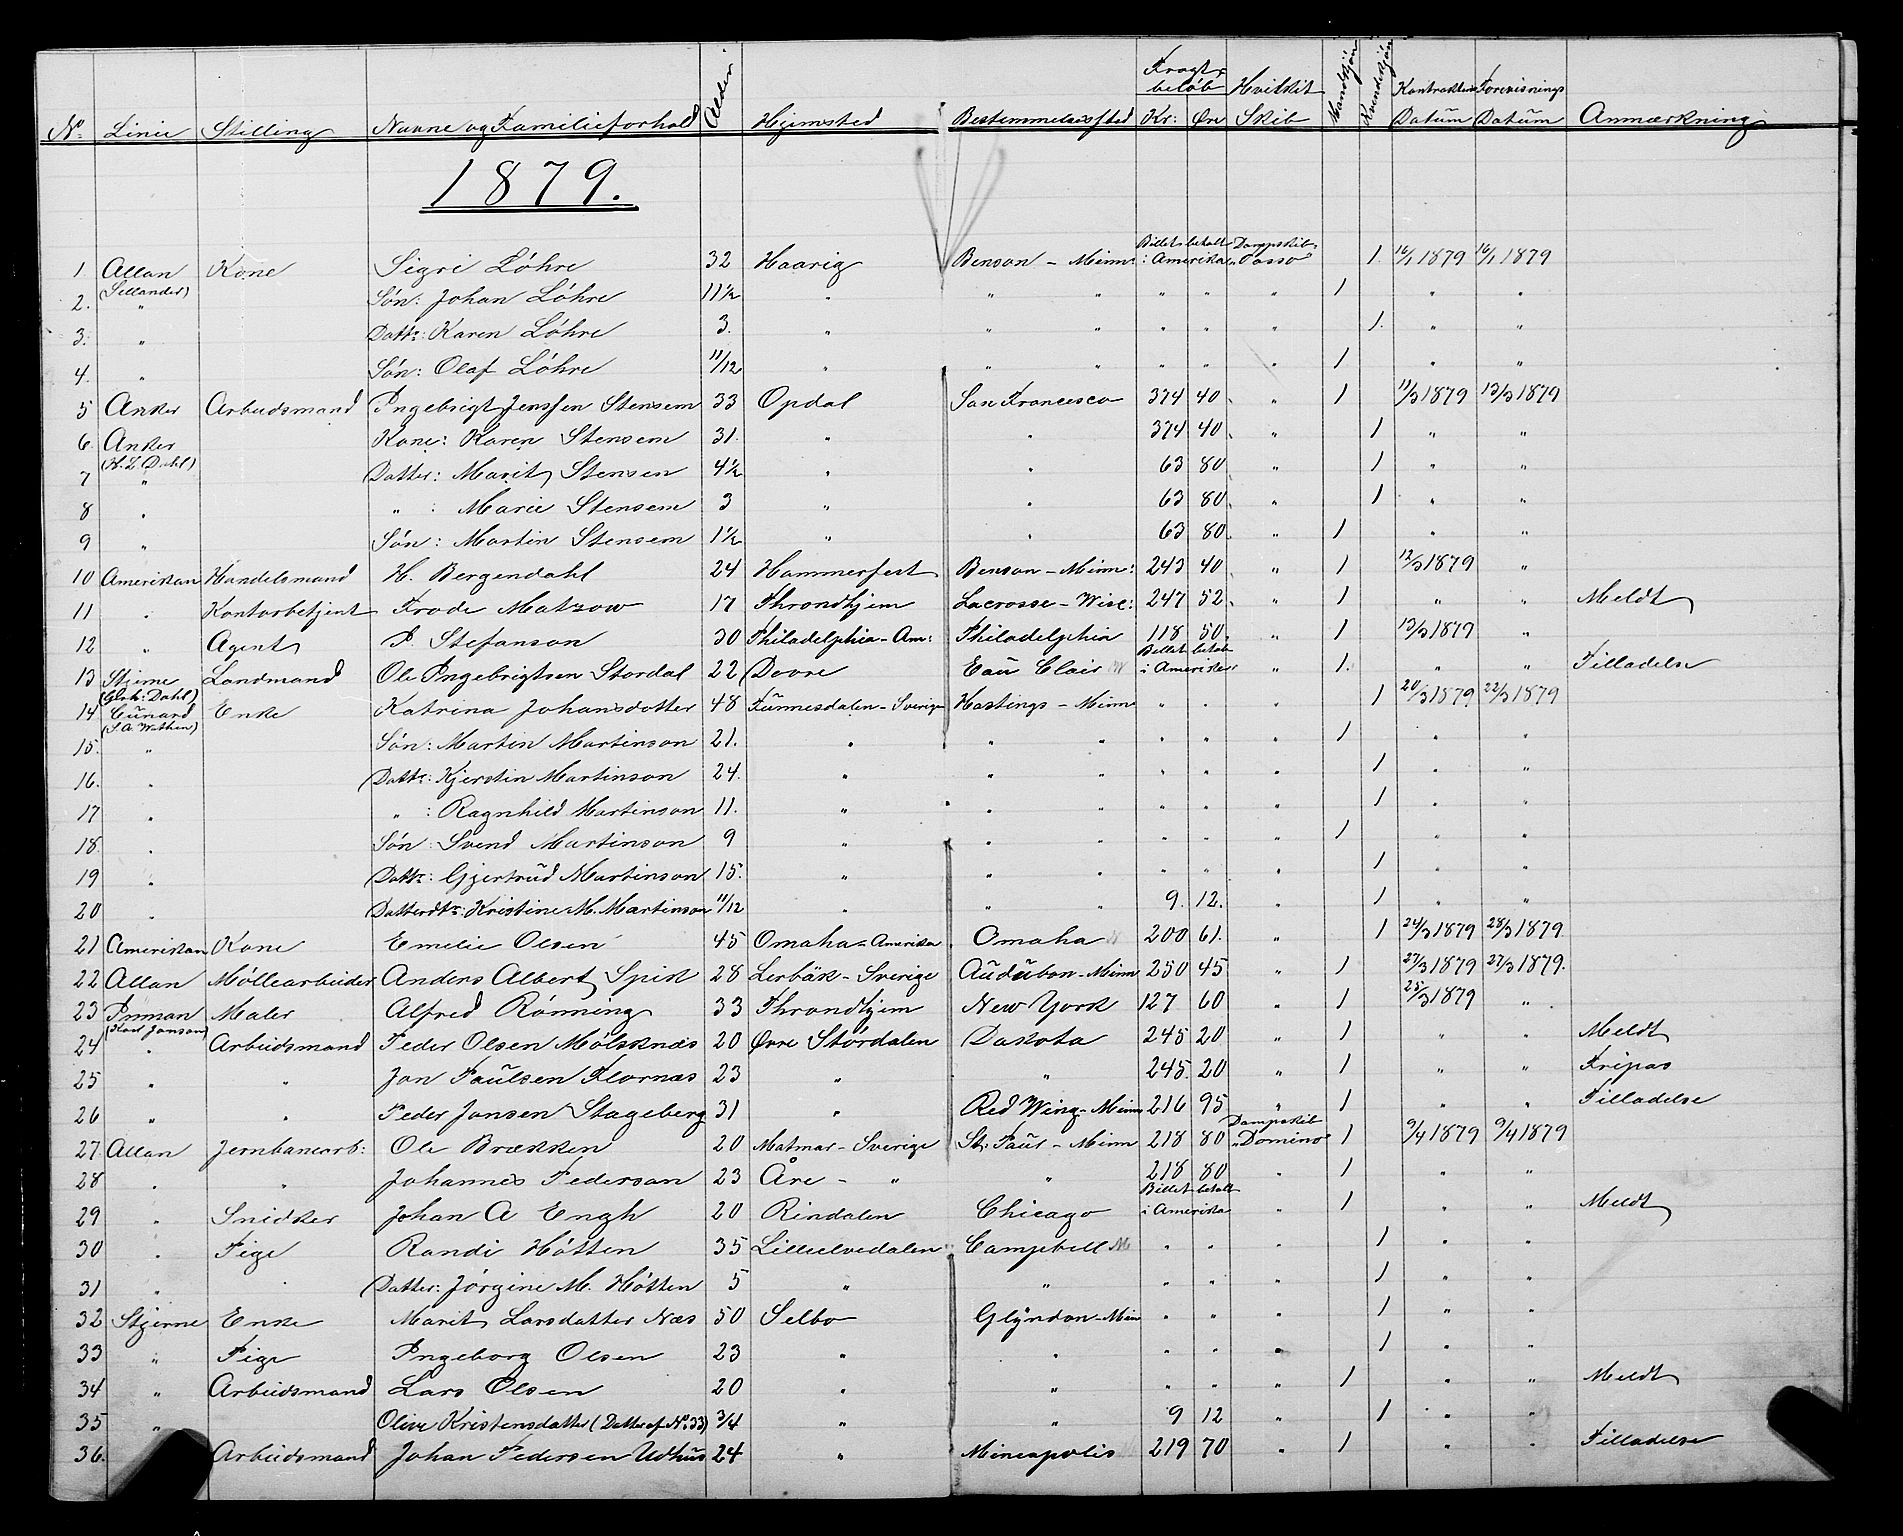 No. Linie Stilling Navne og Familieforhold Alder Hjemsted Bestemmelsessted Fragtbeløb Kr: Øre Hvilket Skib Mandkjøn Kvindekjøn Kontraktens Datum Forevisnings Datum Anmærkning
1879.
1. Allan (Sillander) Kone Sigri Löhre 32 Haarig Benson - Minn: Billet betalt i Amerika Dampskib „Tasso" 1. 16/1 1879 16/1 1879
2. " Søn: Johan Löhre 11½ " " " " " " 1 " "
3. " Dattr: Karen Löhre 3. " " " " " " 1. " "
4. " Søn: Olaf Löhre 11/12 " " " " " " 1 " "
5 Anker Arbeidsmand Ingebrigt Jenssen Stensem 33 Opdal San Francesco 374 40 " 1 11/3 1879 13/3 1879
6. Anker (H. L. Dahl) Kone: Karen Stensem 31. " " 374 40 " 1 " "
7 " Datter: Marit Stensen 4½ " " 63 80 " 1 " "
8 " " : Marie Stensem 3 " " 63 80 " 1 " "
9 " Søn: Martin Stensem 1½ " " 63 80 " 1 " "
10 Amerikan Handelsmand H. Bergendahl 24 Hammerfest Benson - Minn: 243 40 " 1 12/3 1879 "
11 " Kontorbetjent Frode Matzow 17 Throndhjem Lacrosse - Wisc: 247 52 " 1 " " Meldt
12 " Agent P. Stefanson 30 Philadelphia - Am: Philadelphia 118 50 " 1 13/3 1879 "
13 Stjerne (Gerh: Dahl) Landmand Ole Ingebrigtsen Stordal 22 Dovre Eau Clair W Billet betalt i Amerika " 1. " " Tilladelse
14 Cunard (S. A. Wathen) Enke Katrina Johansdotter 48 Funnesdalen - Sverige Hastings - Minn " " " 1 20/3 1879 22/3 1879
15. " Søn: Martin Martinson 21. " " " " " " 1 " "
16. " Dattr: Kjerstin Martinson 24. " " " " " " 1 " "
17 " " : Ragnhild Martinson 11. " " " " " " 1 " "
18. " Søn: Svend Martinson 9 " " " " " " 1 " "
19 " Dattr: Gjertrud Martinson 15. " " " " " 1 " "
20 " Datterdtr: Kristine M. Martinson 11/12 " " " 9. 12. " 1 " "
21 Amerikan Kone Emelie Olsen 45 Omaha - Amerika Omaha 200 61. " 1 24/3 1879 28/3 1879.
22 Allan Møllearbeider Anders Albert Spik 28 Lerbäk - Sverige Audubon - Minn 250 45 " 1 27/3 1879 27/3 1879.
23 Inman (Karl Janson) Maler Alfred Rönning 33 Throndhjem New York 127 60 " 1 25/3 1879 "
24 " Arbeidsmand Peder Olsen Mölsknæs 20 Øvre Stordalen Dakota 245 20 " 1 " " Meldt
25 " " Jon Paulsen Flornæs 23 " " 245. 20 " 1 " " Fripas
26 " " Peder Jonsen Stageberg 31 " Red Wing - Minn 216 95 " 1 " " Tilladelse
27 Allan Jernbanearb: Ole Brækken 20 Matmar - Sverige St. Paul - Minn 218 80 Dampskib „Domino" 1 9/4 1879 9/4 1879
28 " " Johannes Pederson 23 Åre - " " 218 80 " 1 " "
29 " Snidker Johan A Engh 20 Rindalen Chicago Billet betalt i Amerika " 1 " " Meldt
30 " Pige Randi Hötten 35 Lilleelvedalen Campbell M " " " 1 " "
31 " " Datter: Jörgine M. Hötten 5 " " " " " 1 " "
32 Stjerne Enke Marit Larsdatter Næs 50 Selbo Glyndon - Minn " " " 1 " "
33 " Pige Ingeborg Olsen 23 " " " " " 1 " "
34 " Arbeidsmand Lars Olsen 20 " " " " " 1 " " Meldt
35 " Olive Kristensdatter (Datter af No 33) 3/4 " " 9 12 " 1 " "
36. Arbeidsmand Johan Pedersen Udhus 24 " Mineapolis 219 70 " 1 " " Tilladelse